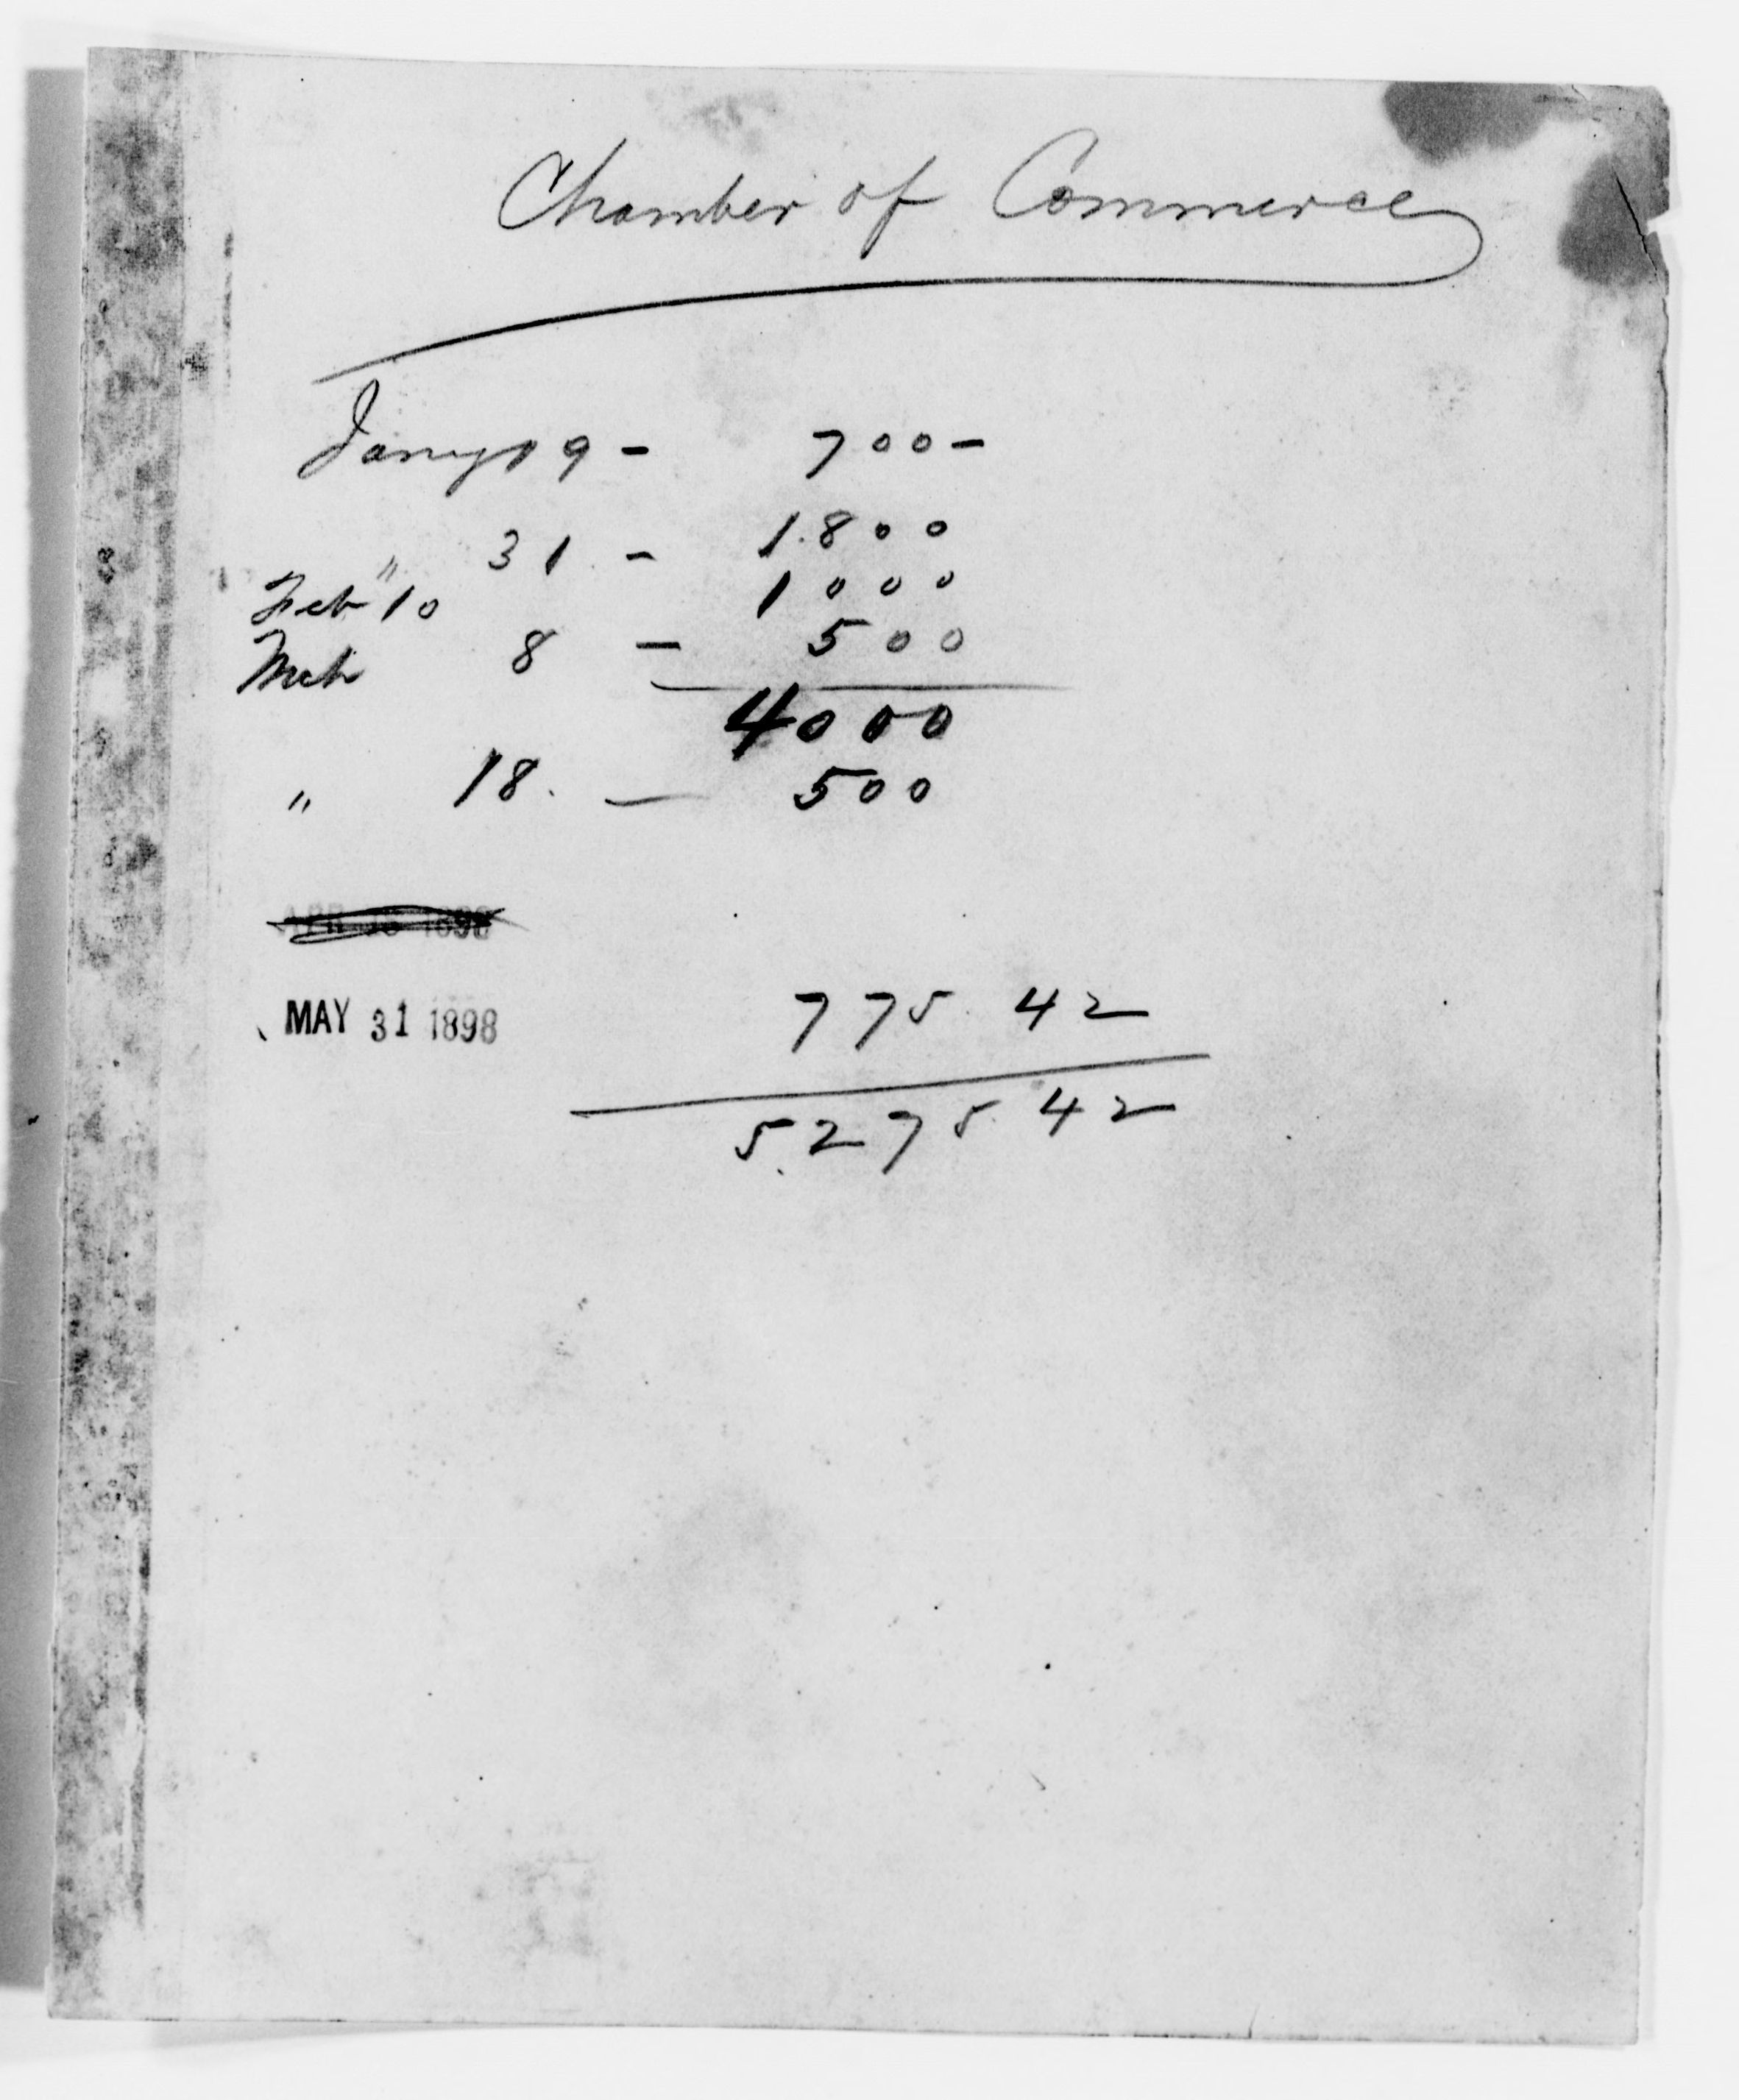 Chamber of Commerce
Jany 19 - 700 -
" 31 - 1.800
Feb 10 1000
Mch 8 - 500
4000
" 18. - 500
MAY 31 1898 775.42
5.275.42